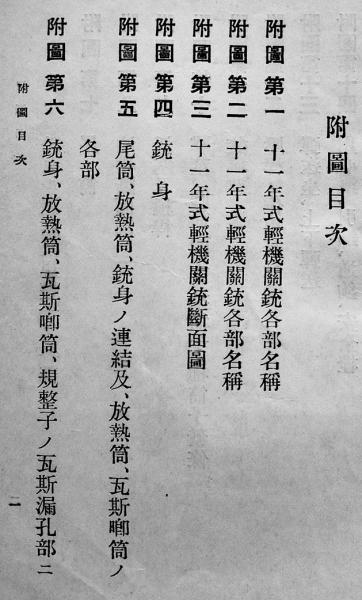 附圖目次
附圖第一 十一年式輕機關銃各部名稱
附圖第二 十一年式輕機關銃各部名稱
附圖第三 十一年式輕機關銃斷面圖
附圖第四 銃身
附圖第五 尾筒、放熱筒、銃身ノ連結及、放熱筒、瓦斯喞筒ノ
各部
附圖第六 銃身、放熱筒、瓦斯喞筒、規整子ノ瓦斯漏孔部ニ
附圖目次
一